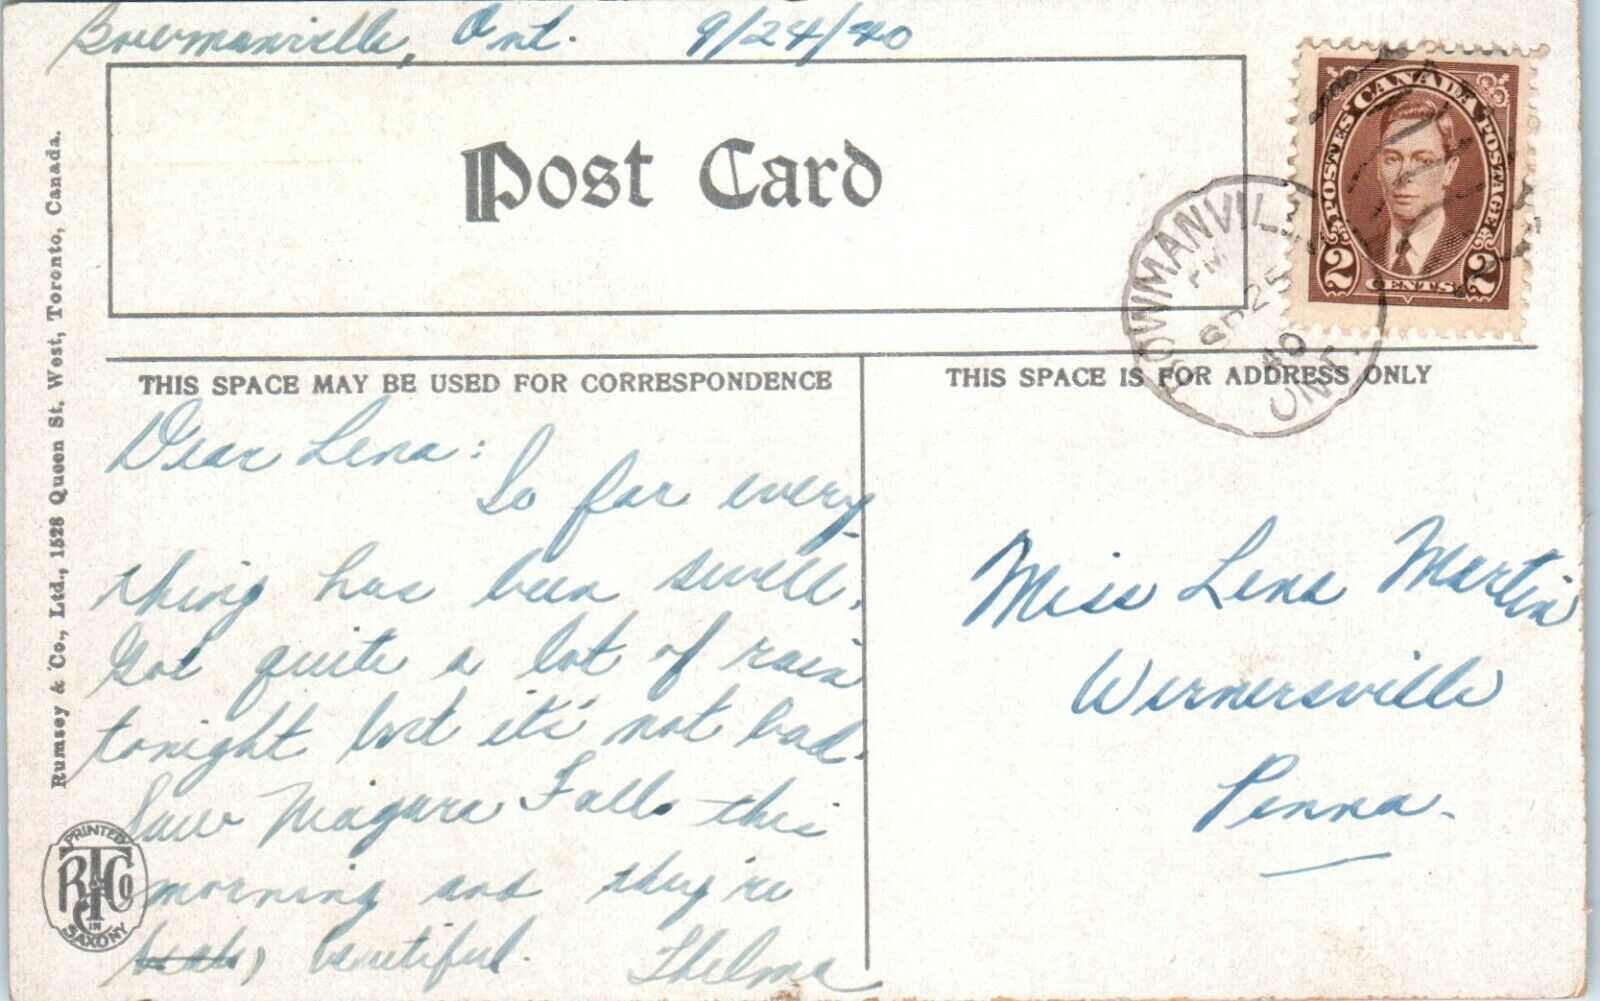 Bowmanville, Ont. 9/24/40
Post Card
CANADA
POSTES POSTAGE
2 CENTS 2
BOWMANVILL
PM
SP 25
40
ONT.
THIS SPACE MAY BE USED FOR CORRESPONDENCE
THIS SPACE IS FOR ADDRESS ONLY
Dear Lena:
So far every
thing has been swell.
Got quite a lot of rain
tonight but it's not bad.
Saw Niagara Falls this
morning and they're
beautiful. Thelma
Miss Lena Martin
Wernersville
Penna.
Rumsey & Co., Ltd., 1528 Queen St. West, Toronto, Canada.
PRINTED
R & Co
IN
SAXONY